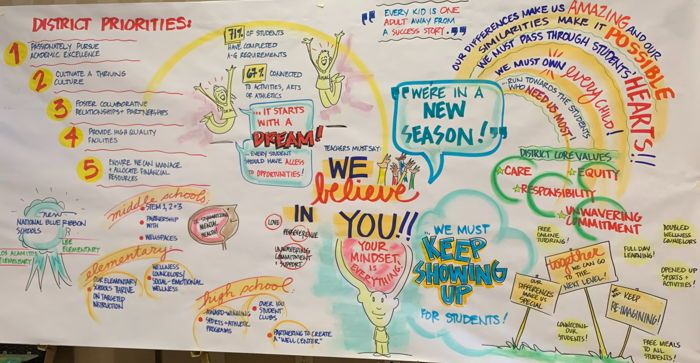 DISTRICT PRIORITIES:
1 PASSIONATELY PURSUE
ACADEMIC EXCELLENCE
2 CULTIVATE A THRIVING
CULTURE
3 FOSTER COLLABORATIVE
RELATIONSHIPS + PARTNERSHIPS
4 PROVIDE HIGH QUALITY
FACILITIES
5 ENSURE WE CAN MANAGE
+ ALLOCATE FINANCIAL
RESOURCES
71% OF STUDENTS
HAVE COMPLETED
A-G REQUIREMENTS
67% CONNECTED
TO ACTIVITIES, ARTS
OR ATHLETICS
...IT STARTS
WITH A
DREAM!
...EVERY STUDENT
SHOULD HAVE ACCESS
TO OPPORTUNITIES!
"EVERY KID IS ONE
ADULT AWAY FROM
A SUCCESS STORY."
"WE'RE IN A
NEW
SEASON!"
OUR DIFFERENCES MAKE US AMAZING AND OUR
SIMILARITIES MAKE IT POSSIBLE
WE MUST PASS THROUGH STUDENTS' HEARTS!!
WE MUST OWN every CHILD!
...RUN TOWARDS THE STUDENTS
WHO NEED US MOST!
TEACHERS MUST SAY:
WE
believe
IN
YOU!!
YOUR
MINDSET
IS
EVERYTHING!
DISTRICT CORE VALUES
CARE
EQUITY
RESPONSIBILITY
UNWAVERING
COMMITMENT
new
NATIONAL BLUE RIBBON
SCHOOLS
LOS ALAMITOS
ELEMENTARY
LEE
ELEMENTARY
middle schools
STEM 1, 2 + 3
PARTNERSHIP
WITH
WELLSPACES
DE-STIGMATIZING
MENTAL
HEALTH!
elementary
OUR ELEMENTARY
SCHOOLS THRIVE
ON TARGETED
INSTRUCTION
WELLNESS
COUNSELORS/
SOCIAL-EMOTIONAL
WELLNESS
high school
AWARD-WINNING
SPORTS + ATHLETIC
PROGRAMS
OVER 100
STUDENT
CLUBS
PARTNERING TO CREATE
A "WELL CENTER"
LOVE
PERSEVERANCE
UNWAVERING
COMMITMENT
+ SUPPORT
...WE MUST
KEEP
SHOWING
UP
FOR STUDENTS!
FREE
ONLINE
TUTORING!
FULL-DAY
LEARNING!
DOUBLED
WELLNESS
COUNSELORS
OPENED UP
SPORTS +
ACTIVITIES!
OUR
DIFFERENCES
MAKE US
SPECIAL
together
WE CAN GO
TO THE
NEXT LEVEL!
KEEP
RE-IMAGINING!
CONNECTING
OUR
STUDENTS!
FREE MEALS
TO ALL
STUDENTS!